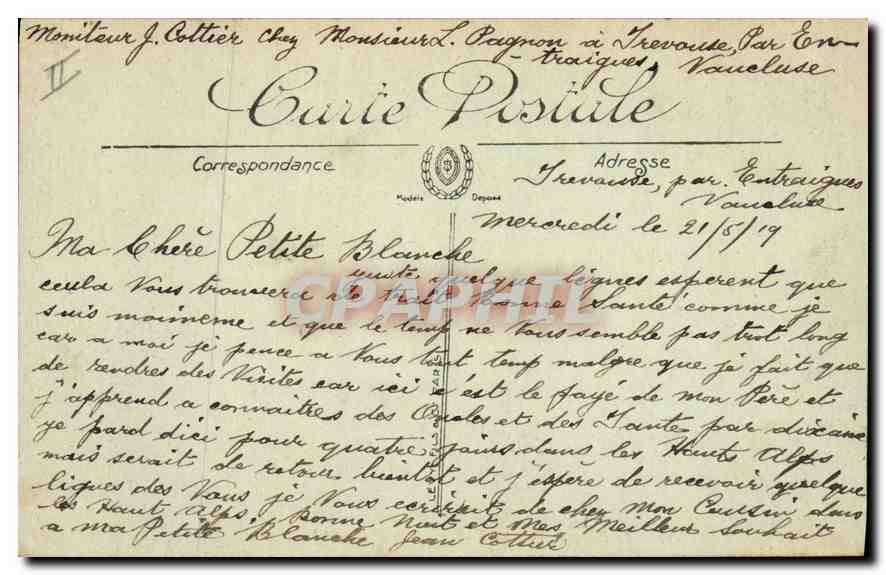 Moniteur J. Cottier chez Monsieur L. Pagnon à Trevouse, Par En-
traigues, Vaucluse
II
Carte Postale
Correspondance
Adresse
Modèle Déposé
Trevouse, par. Entraigues
Vaucluse
Mercredi le 21/5/19
Ma Cherè Petite Blanche
quelque lignes esperent que
ceula Vous trouvera de trait bonne Santé comme je
suis moimeme et que le temp ne Vous semble pas trot long
car a moi je pence a Vous tout temp malgre que je fait que
de rendres des Visites car ici c'est le payé de mon Perè et
j'apprend a connaitres des Oncles et des Tante par dixaine
je pard dici pour quatre jours dans les Hauts Alps
mais serait de retour bientot et j'espère de recevoir quelque
lignes des Vous je Vous ecrirait de chez mon Cousin dans
les Haut Alps. Bonne Nuit et Mes Meilleur Souhait
a ma Petite Blanche Jean Cottier
CPAPHIL